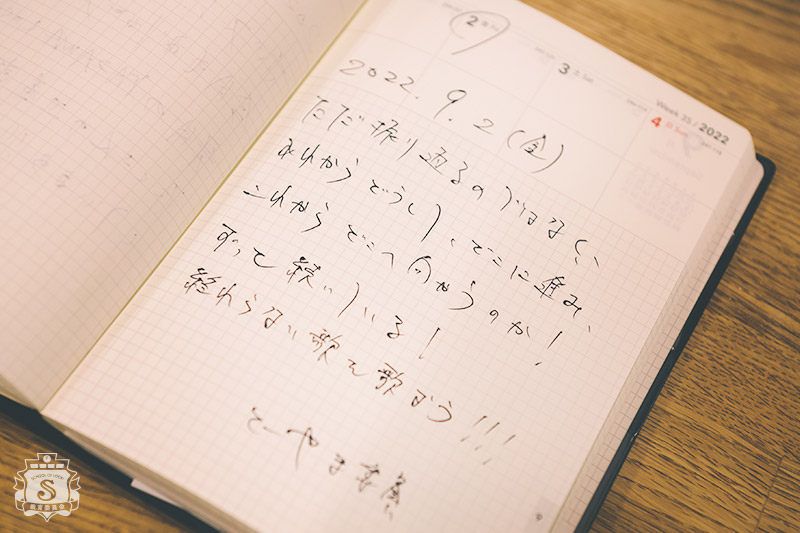 2
3
4
Week 35 / 2022
2022. 9. 2 (金)
ただ振り返るのではなく、
それからどうして、どこに進み、
これからどこへ向かうのか!
ずっと続いている!
終わらない歌を歌おう!!!
とーやま
SCHOOL OF LOCK!
S
教育委員会